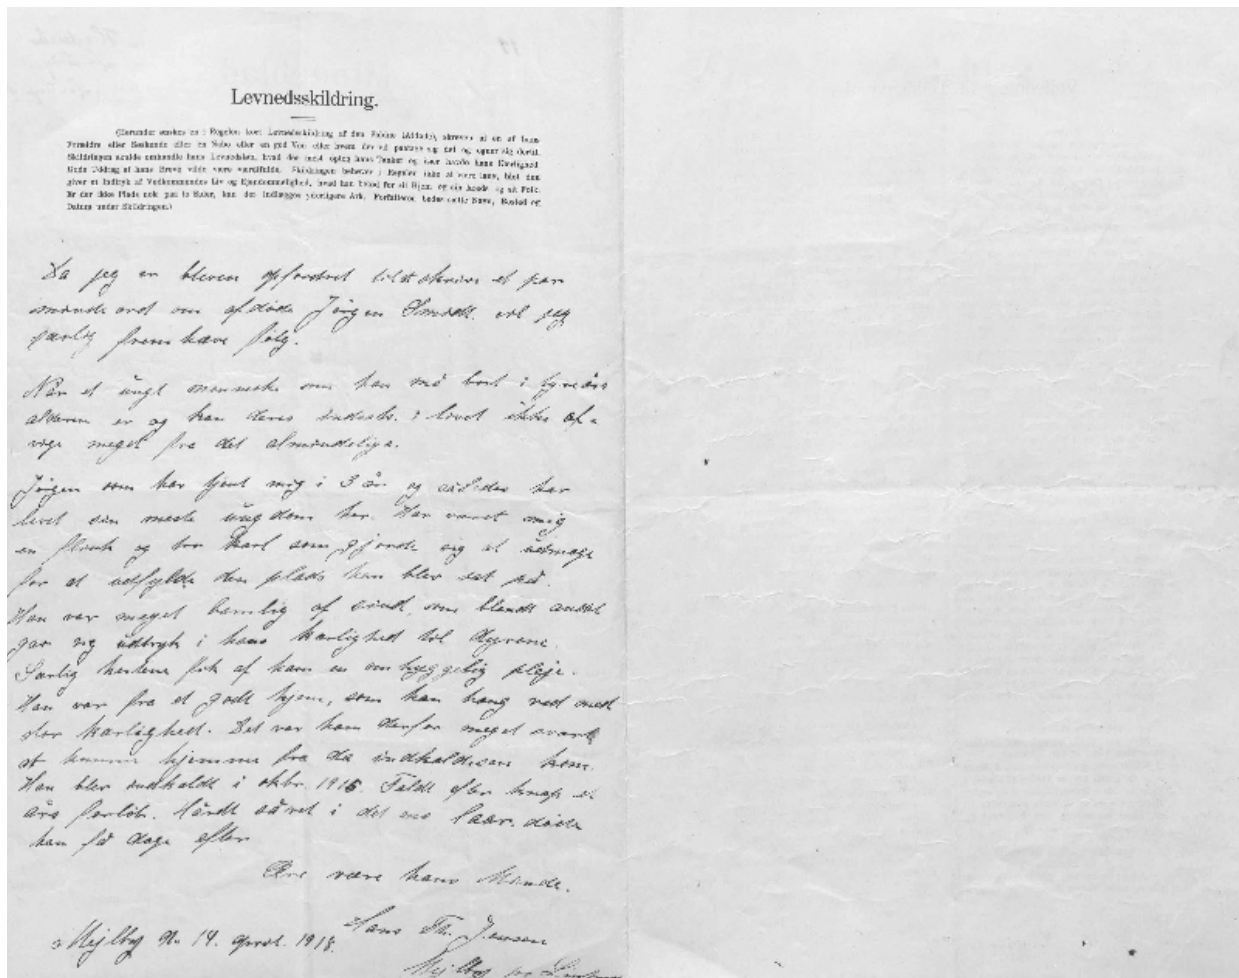 Levnedsskildring.
(Herunder ønskes en i Regelen kort Levnedsskildring af den Faldne (Afdøde), skreven af en af hans
Forældre eller Søskende eller en Nabo eller en god Ven eller hvem der vil paatage sig det og egner sig dertil.
Skildringen skulde omhandle hans Levnedsløb, hvad der mest optog hans Tanker og især havde hans Kærlighed.
Gode Uddrag af hans Breve vilde være værdifulde. Skildringen behøver i Regelen ikke at være lang, blot den
giver et Indtryk af Vedkommendes Liv og Ejendommelighed, hvad han betød for sit Hjem og sin Kreds og sit Folk.
Er der ikke Plads nok paa to Sider, kan der indlægges yderligere Ark. Forfatteren bedes sætte Navn, Bosted og
Datum under Skildringen.)
Da jeg er bleven opfordret til at skrive et par
minde ord om afdøde Jörgen Smidt. vil jeg
særlig frem hæve følg.
Når et ungt menneske som han må bort i tyve års
alderen er og kan deres indsats i livet ikke af-
vige meget fra det almindelige.
Jörgen som har tjent mig i 3 år og således har
levet sin meste ungdom her. Har været mig
en flink og tro karl som gjorde sig al umage
for at udfylde den plads han blev sat på.
Han var meget barnlig af sind, som blandt andet
gav sig udtryk i hans kærlighed til dyrene.
Særlig hestene fik af ham en omhyggelig pleje.
Han var fra et godt hjem, som han hang ved med
stor kærlighed. Det var ham derfor meget svært
at komme hjemme fra da indkaldelsen kom.
Han blev indkaldt i oktbr. 1916. Faldt efter knap et
års forløb. Hårdt såret i det ene laar. døde
han få dage efter
Ære være hans Minde.
Hans Th. Jensen
Mejlby d. 14. april. 1918.
Mejlby